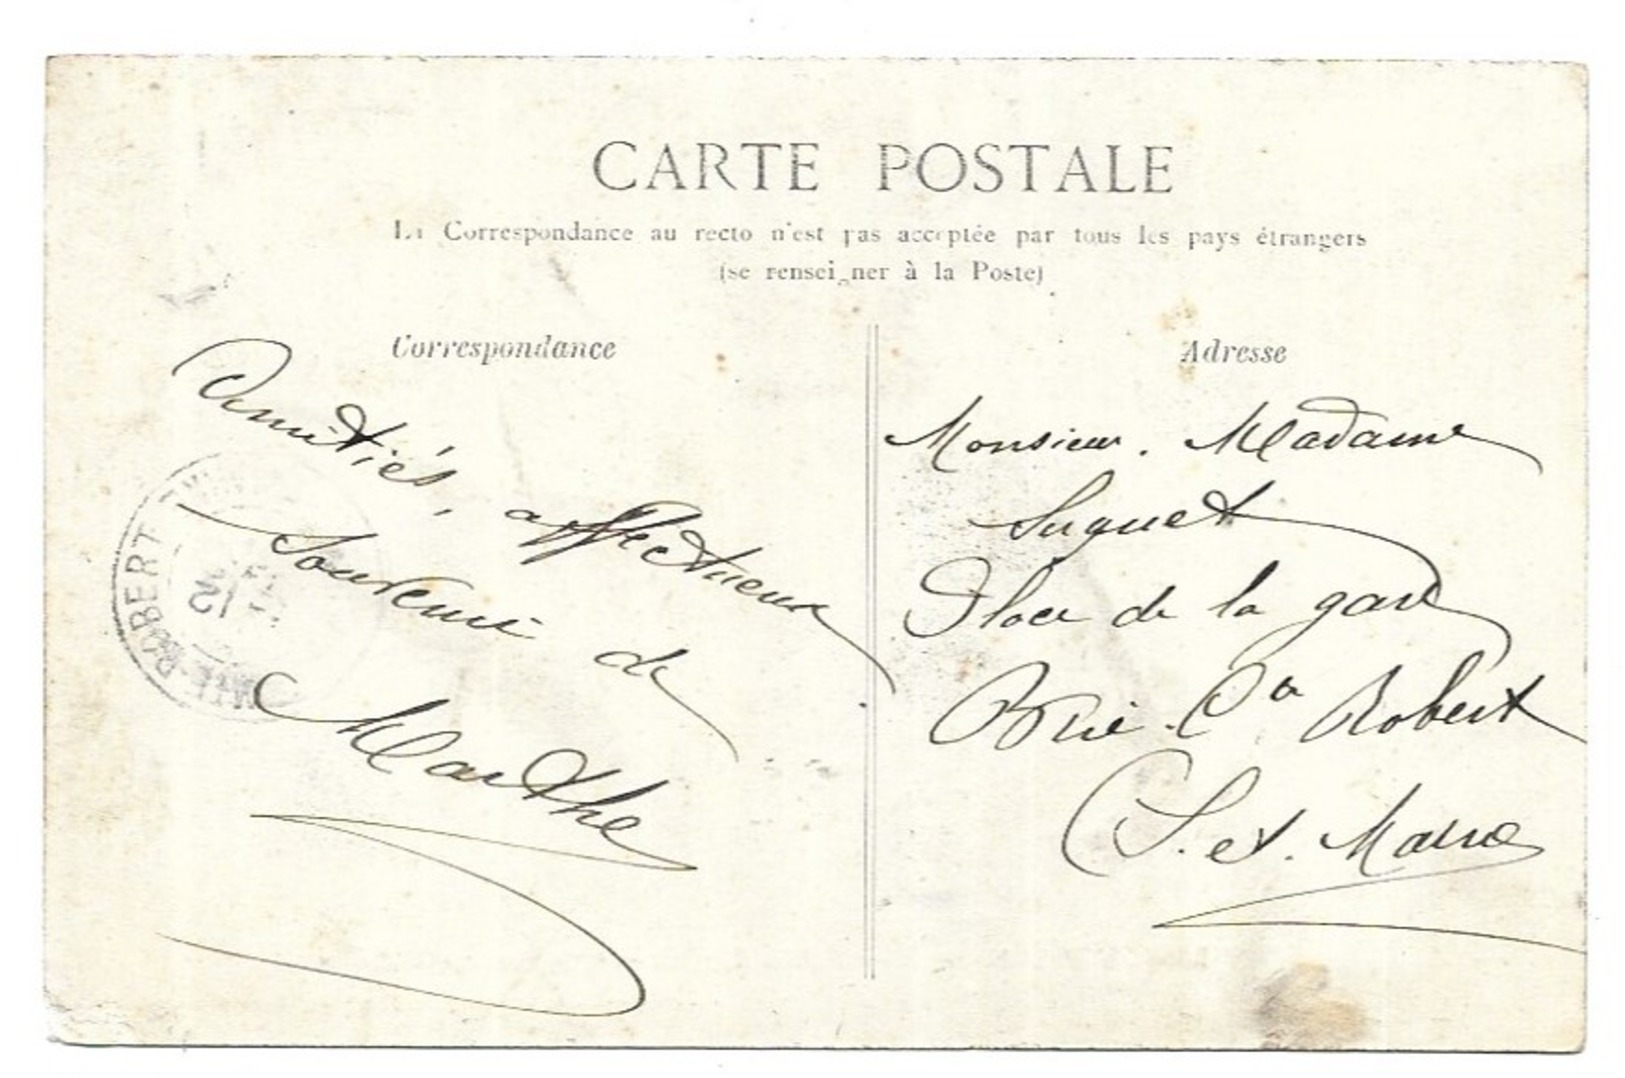 CARTE POSTALE
La Correspondance au recto n'est pas acceptée par tous les pays étrangers
(se renseigner à la Poste)
Correspondance
Amitiés, affectueux
souvenir de
Marthe
Adresse
Monsieur. Madame
Suquet
Place de la gare
Brie. Cte Robert
S. et. Marne
ROBERT